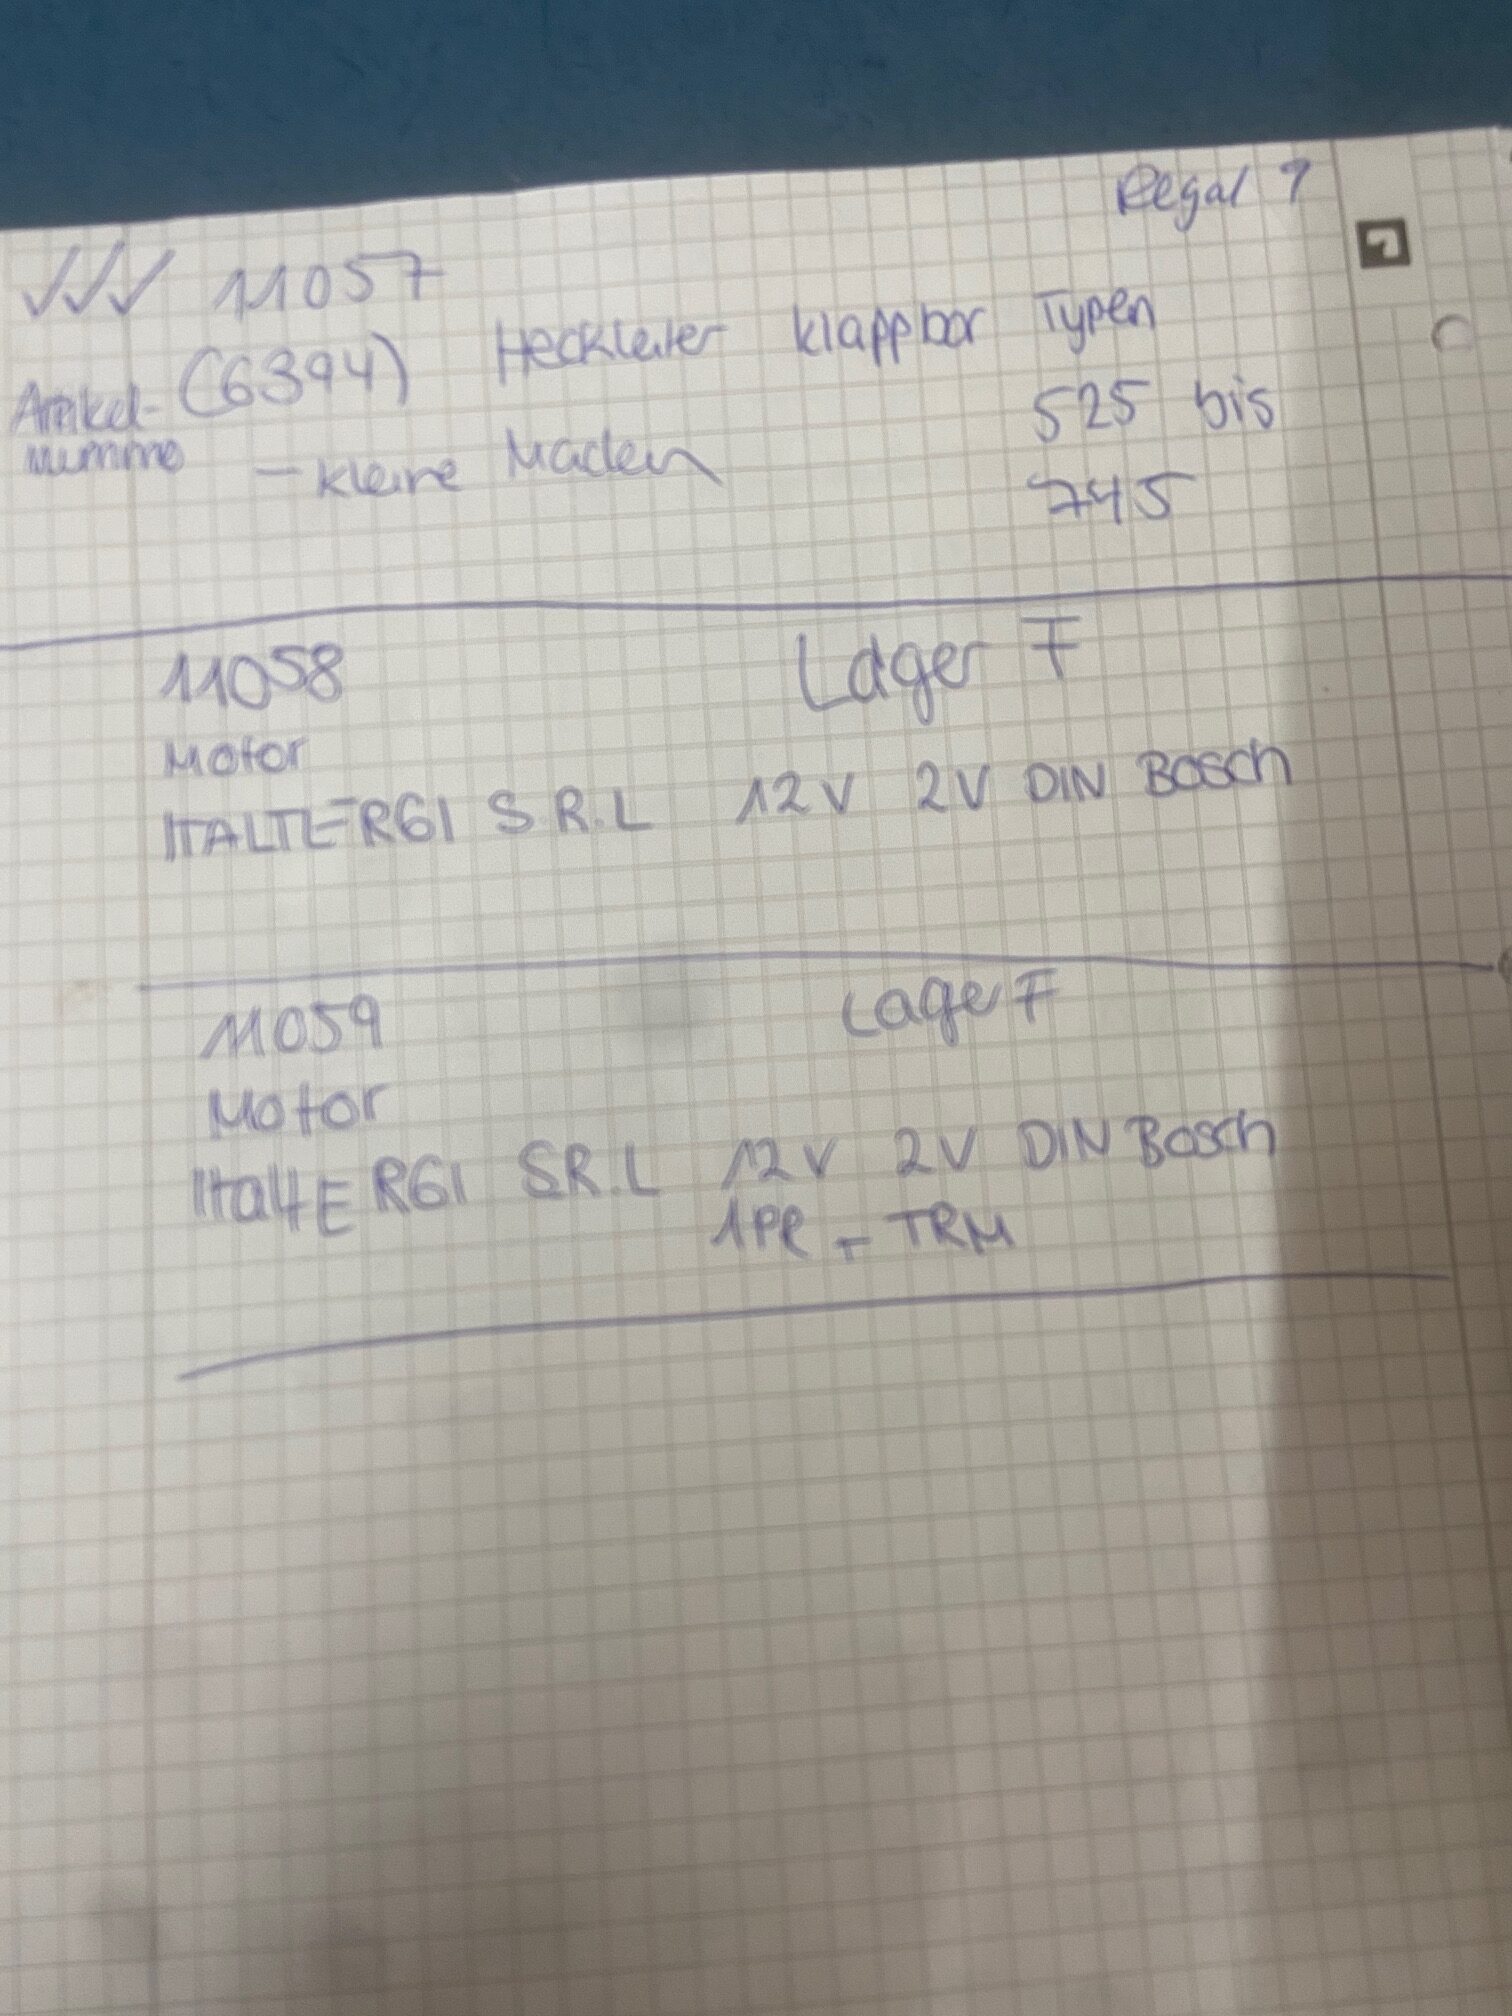 Regal ?
11057
(6394) Heckleiter klappbar Typen
Artikel-
nummme
525 bis
- kleine Macken
745
11058 Lager F
Motor
ITALTERGI S R.L 12V 2V DIN Bosch
11059 Lager F
Motor
ItaltERGI S.R.L 12V 2V DIN Bosch
1PR - TRM